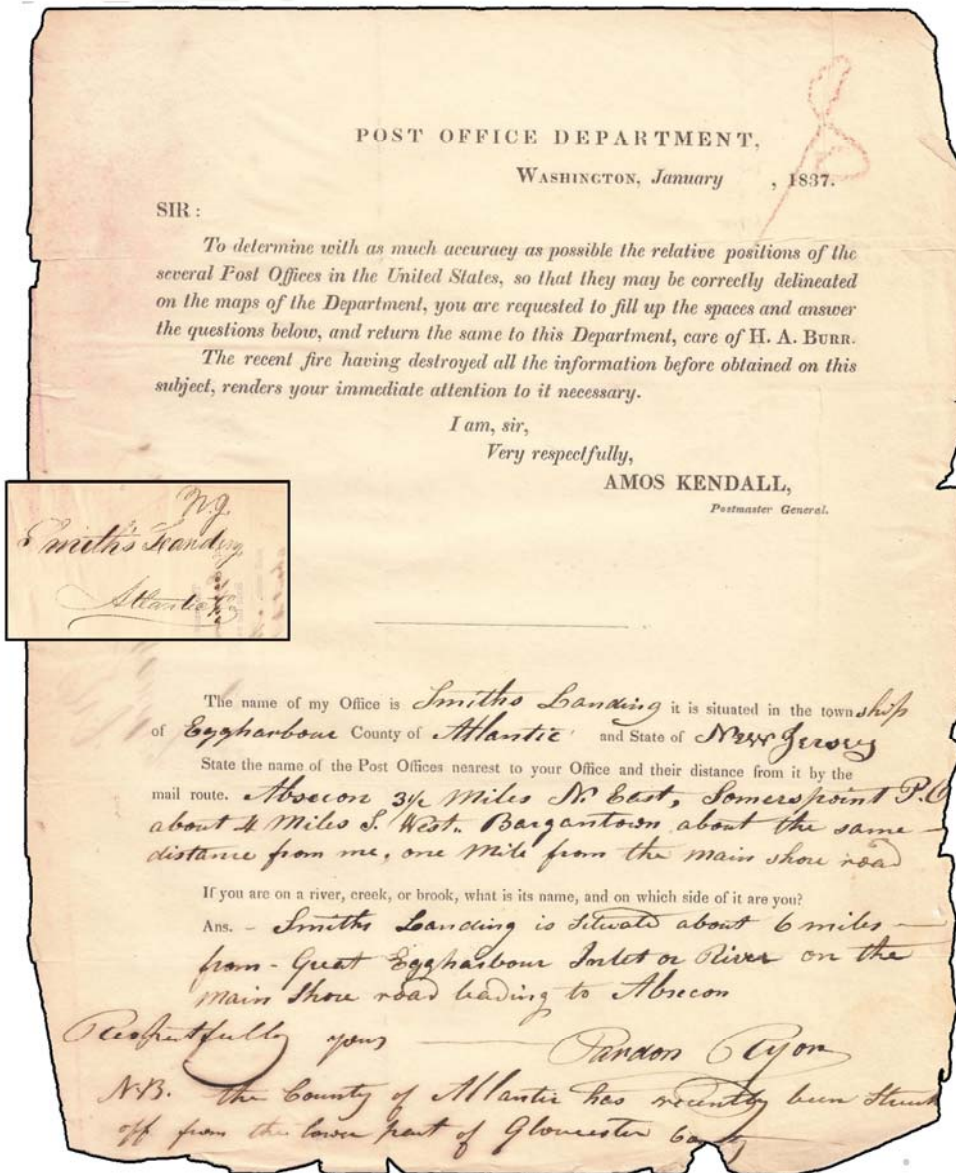 POST OFFICE DEPARTMENT,
WASHINGTON, January , 1837.
SIR :
To determine with as much accuracy as possible the relative positions of the
several Post Offices in the United States, so that they may be correctly delineated
on the maps of the Department, you are requested to fill up the spaces and answer
the questions below, and return the same to this Department, care of H. A. BURR.
The recent fire having destroyed all the information before obtained on this
subject, renders your immediate attention to it necessary.
I am, sir,
Very respectfully,
AMOS KENDALL,
Postmaster General.
N.J.
Smith's Landing
Atlantic Co
The name of my Office is Smiths Landing it is situated in the town ship
of Eggharbour County of Atlantic and State of New Jersey
State the name of the Post Offices nearest to your Office and their distance from it by the
mail route. Absecon 3½ Miles N. East, Somerspoint P.O
about 4 Miles S. West. Bargantown about the same
distance from me, one Mile from the main shore road
If you are on a river, creek, or brook, what is its name, and on which side of it are you?
Ans. - Smiths Landing is situate about 6 miles
from - Great Eggharbour Inlet or River on the
main Shore road leading to Absecon
Respectfully yours Pardon Ryon
N.B. the County of Atlantic has recently been Struck
off from the lower part of Gloucester County